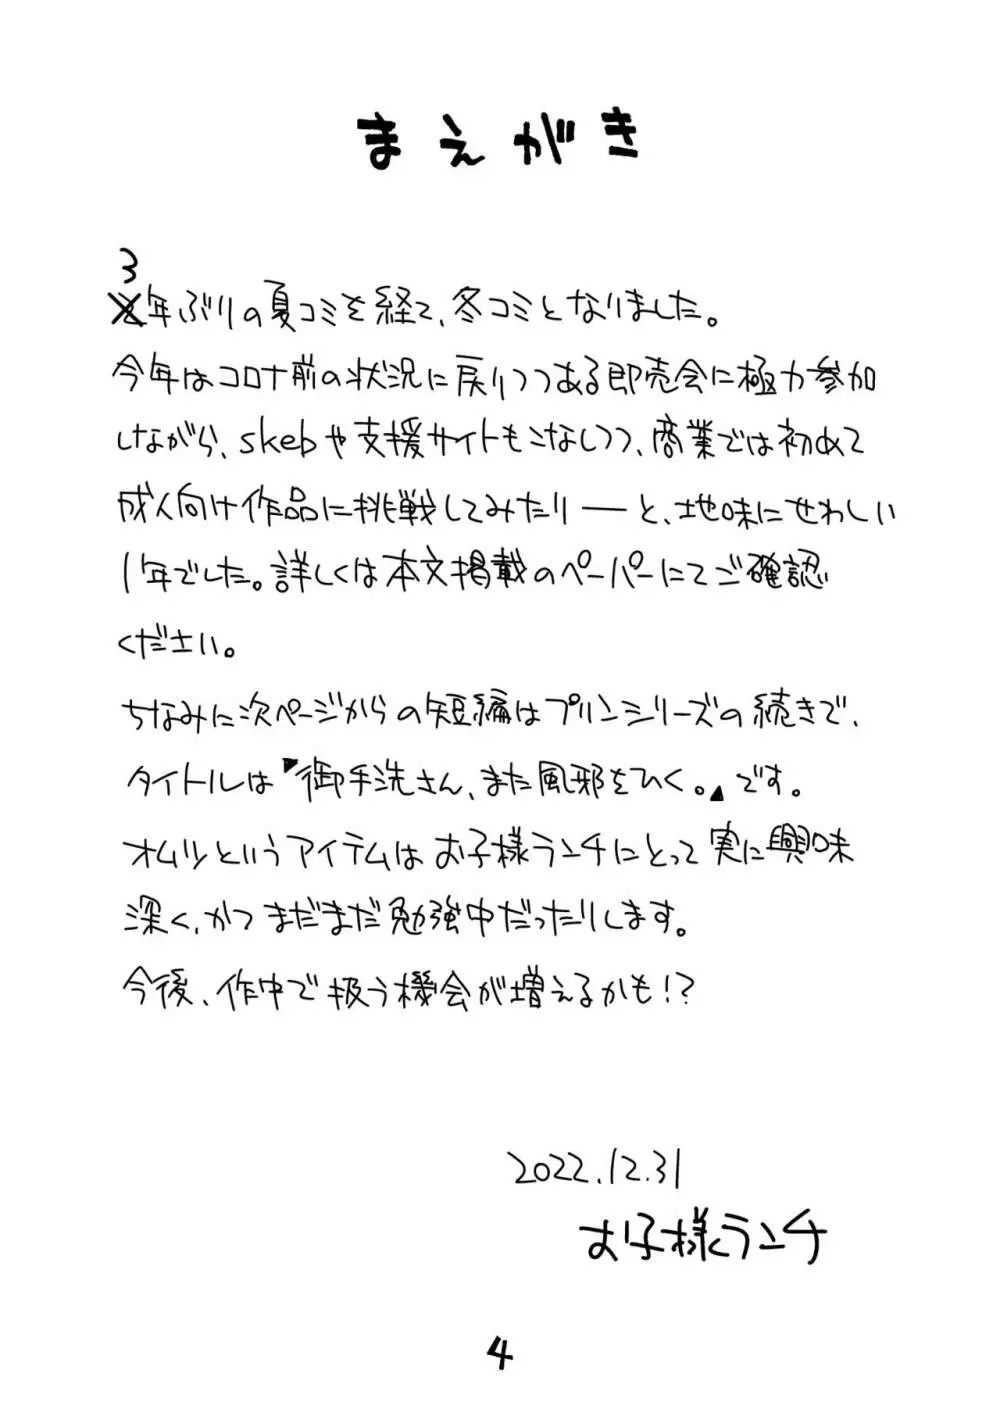 まえがき
3
年ぶりの夏コミを経て、冬コミとなりました。
今年はコロナ前の状況に戻りつつある即売会に極力参加
しながら、skebや支援サイトもこなしつつ、商業では初めて
成人向け作品に挑戦してみたり――と、地味にせわしい
1年でした。詳しくは本文掲載のペーパーにてご確認
ください。
ちなみに次ページからの短編はプリンシリーズの続きで、
タイトルは『御手洗さん、また風邪をひく。』です。
オムツというアイテムはお子様ランチにとって実に興味
深く、かつまだまだ勉強中だったりします。
今後、作中で扱う機会が増えるかも!?
2022.12.31
お子様ランチ
4